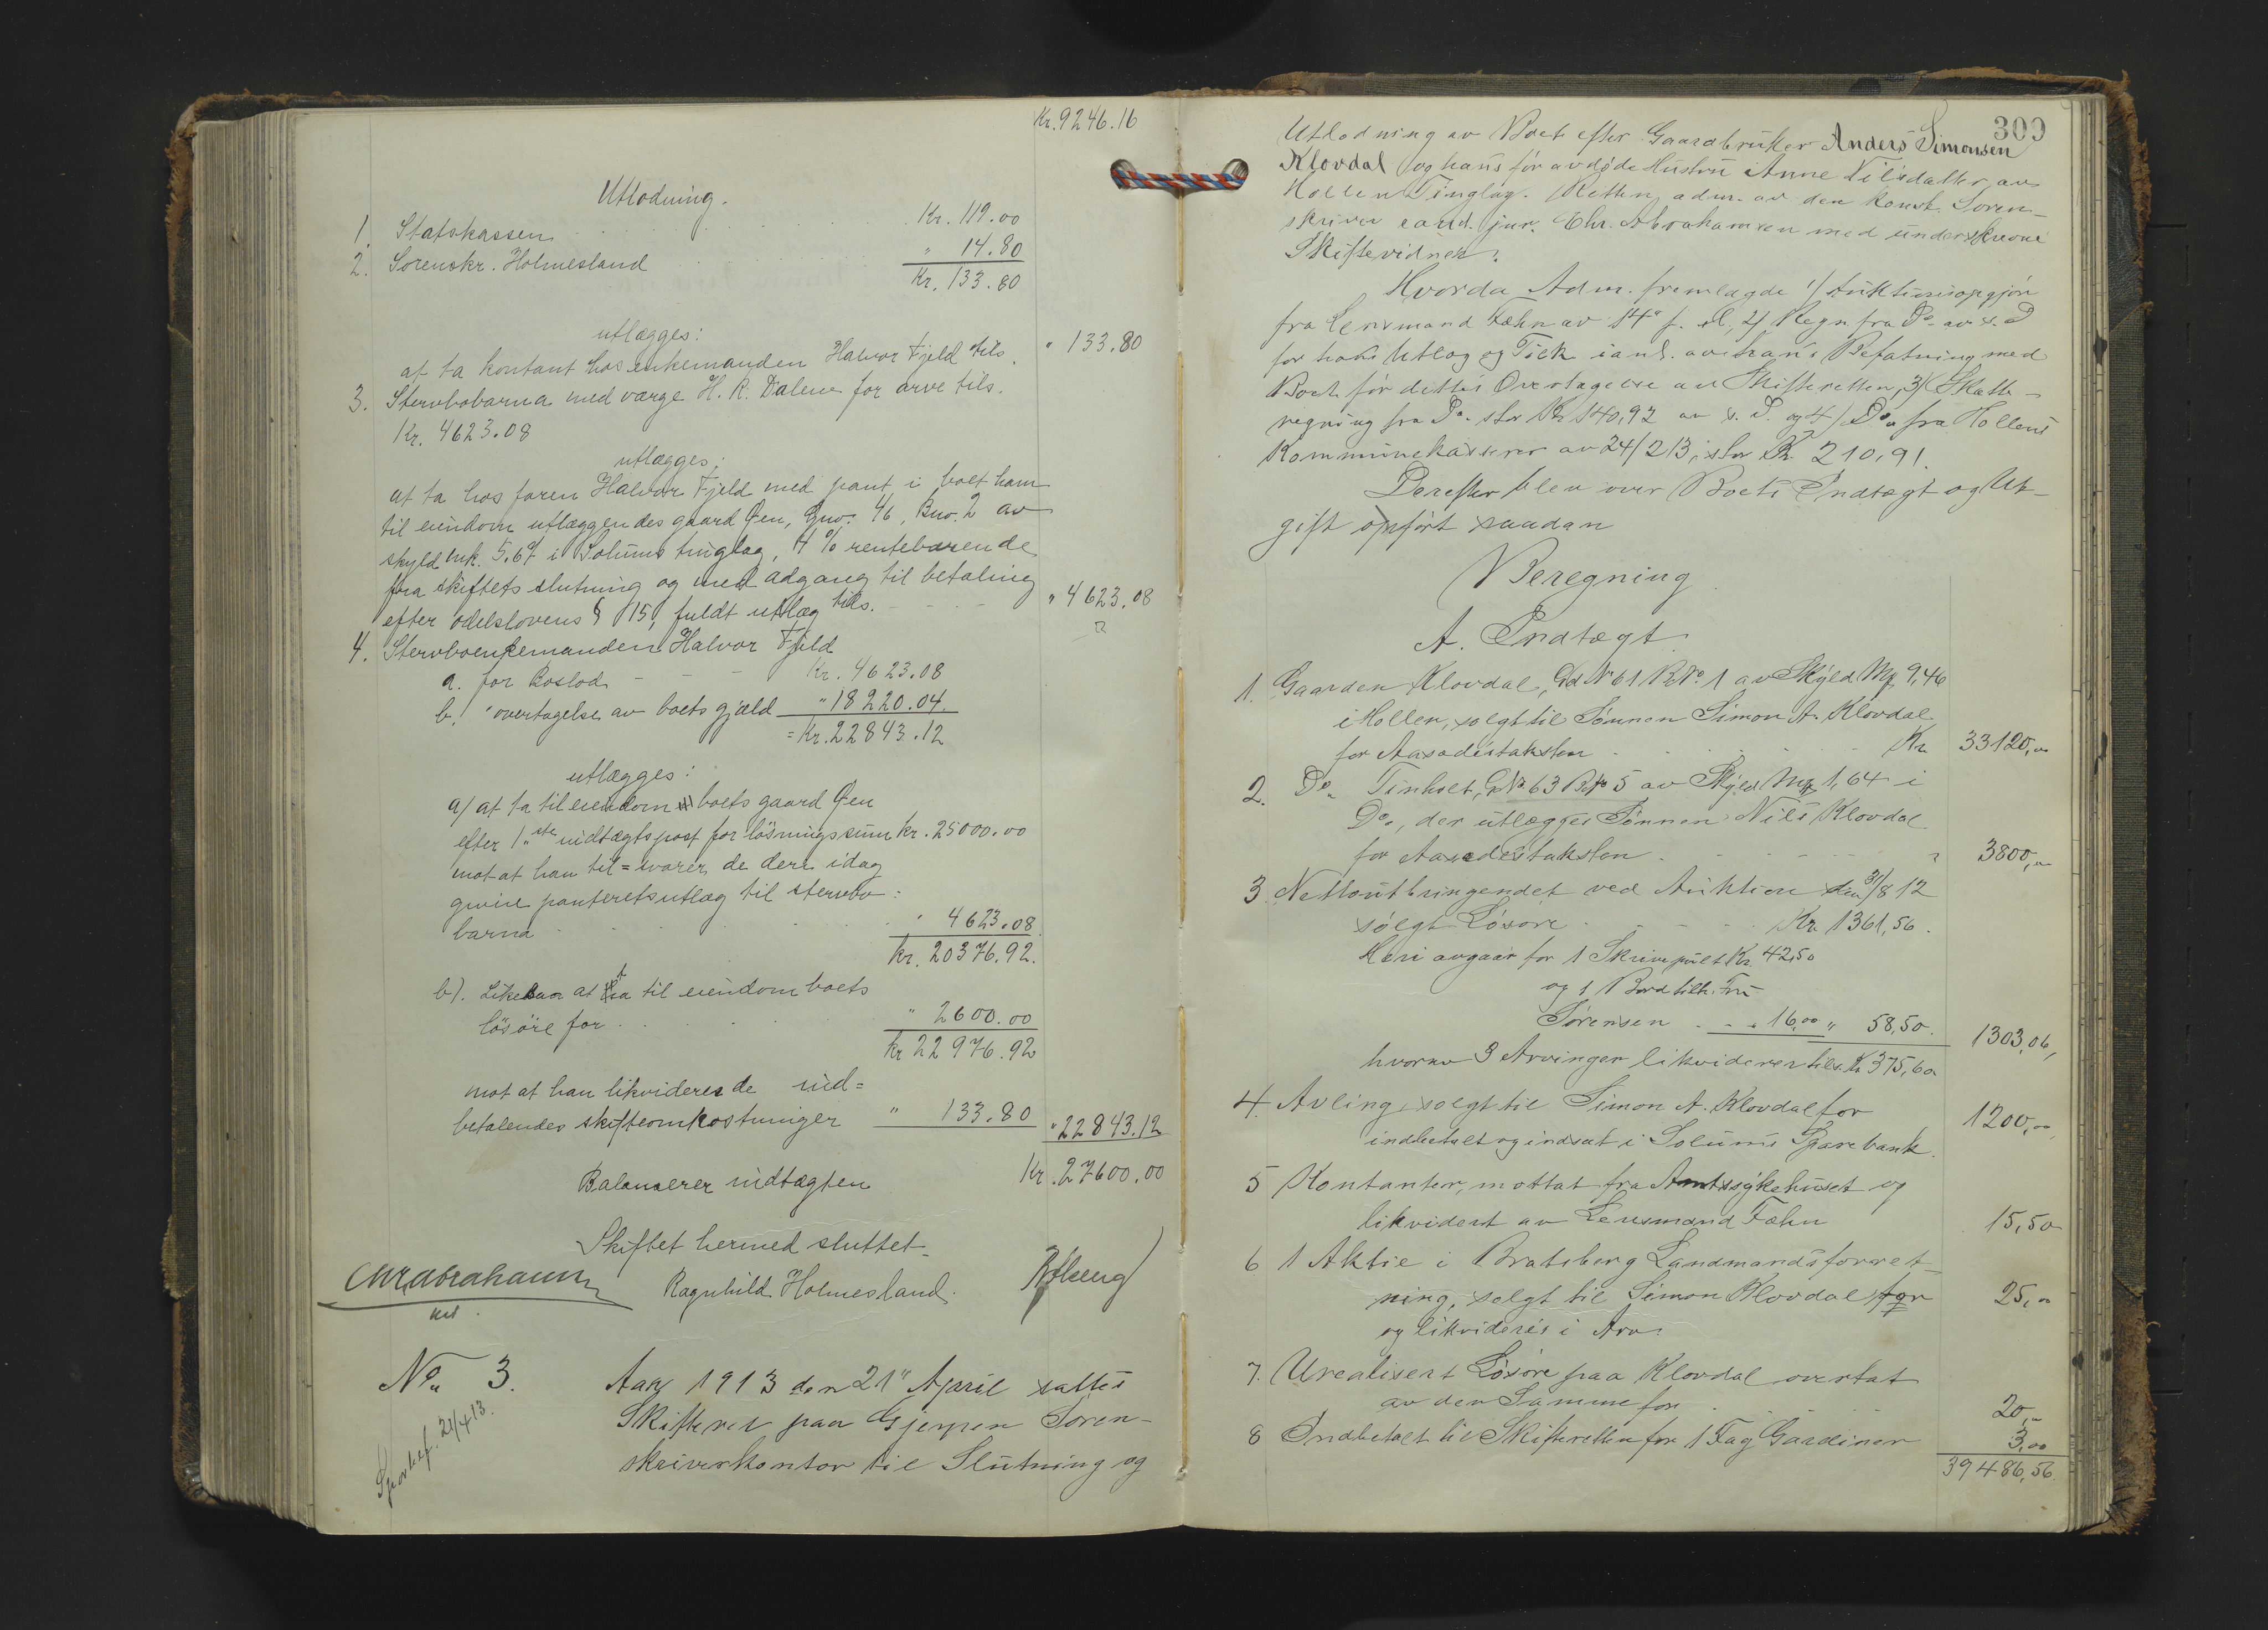 Kr. 9246.16
Utlodning.
1. Statskassen Kr. 119.00
2. Sorenskr. Holmesland " 14.80
Kr. 133.80
utlægges:
at ta kontant hos enkemanden Halvor Fjeld tils. " 133.80
3. Stervbobarna med værge H. R. Dalene for arve tils.
Kr. 4623.08
utlægges:
at ta hos faren Halvor Fjeld med pant i boet ham
til eiendom utlæggendes gaard Gjen, Gno. 46, Bno. 2 av
skyld mk. 5.67 i Solums tinglag, 4 % rentebærende
fra skiftets slutning og med adgang til betaling
efter odelslovens § 15, fuldt utlæg tils. " 4623.08
4. Stervboenkemanden Halvor Fjeld
a. for boslod Kr. 4623.08
b. " overtagelse av boets gjæld " 18220.04.
= Kr. 22843.12
utlægges:
a) at ta til eiendom boets gaard Gjen
efter 1ste indtægtspost for løsningssum kr. 25000.00
mot at han til=svarer de deri idag
givne panteretsutlæg til stervbo-
barna " 4623.08
kr. 20376.92.
b). Likesaa at ta til eiendom boets
løsøre for " 2600.00
kr 22976.92
mot at han likviderer de ind=
betalendes skifteomkostninger " 133.80 " 22843.12
Balanserer indtægten Kr. 27600.00
Skiftet hermed sluttet.
Chr Abrahamsen
kst.
Ragnhild Holmesland.
No. 3. Aar 1913 den 21" April sattes
Skifteret paa Gjerpen Soren-
skriverkontor til Slutning og
309
Utlodning av Boet efter Gaardbruker Anders Simonsen
Klovdal og hans før avdøde Hustru Anne Nilsdatter av
Hollen Tinglag. Retten adm. av den konst. Soren-
skriver cand. jur. Chr. Abrahamsen med underskrevne
Skiftevidner.
Hvorda Adm. fremlagde 1/ Auktionsopgjør
fra Lensmand Fæhn av 14. f. M., 2/ Regn fra Do. av s. D
for hans Utlæg og i anl. av hans Befatning med
Boet før dettes Overtagelse av Skifteretten, 3/ Skatte-
regning fra Do. stor Kr 140,92 av s. D. og 4/ Do. fra Hollens
Kommunekasserer av 24/2 13, stor Kr. 210,91.
Derefter blev over Boets Indtægt og Ut-
gift opført saadan
Beregning
A. Indtægt.
1. Gaarden Klovdal, Gd No 61 B.No. 1 av Skyld Mk 9,46
i Hollen, solgt til Sønnen Simon A. Klovdal
for Aasædestaksten Kr. 33120,00
2. Do. Tinholt, G.No 63 B.No 5 av Skyld Mk 1,64 i
Do., der utlægges Sønnen Nils Klovdal
for Aasædestaksten " 3800,00
3. Nettoutbringendet ved Auktion den 31/8 12
solgt Løsøre Kr. 1361,56.
Heri avgaar for 1 Skrivepult Kr. 42,50
og 1 Bord tilh. Fru
Sørensen " 16,00 " 58,50. 1303,06,
hvorav 3 Arvinger likviderer tils. Kr 375,60
4. Avling, solgt til Simon A. Klovdal for
indbetalt og indsat i Solums Sparebank. 1200,00
5 Kontanter, mottat fra Amtssykehuset og
likvidert av Lensmand Fæhn 15,50
6 1 Aktie i Bratsberg Landmandsforret-
ning, solgt til Simon Klovdal for 25,00
og likvideres i Arv.
7. Urealisert Løsøre paa Klovdal overtat
av den Samme for 20,00
8 Indbetalt til Skifteretten for 1 Fag Gardiner 3,00
39486,56.